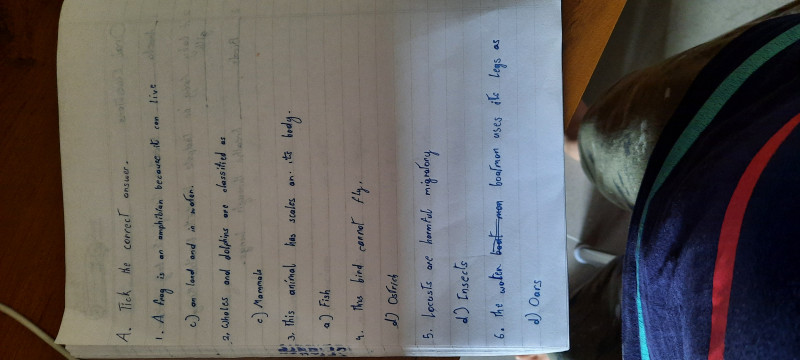 A. Tick the correct answer.
1. A frog is an amphibian because it can live
c) on land and in water.
2. Whales and dolphins are classified as
c) Mammals
3. This animal has scales on its body.
a) Fish
4. This bird cannot fly.
d) Ostrich
5. Locusts are harmful migratory
d) Insects
6. The water boatman uses its legs as
d) Oars